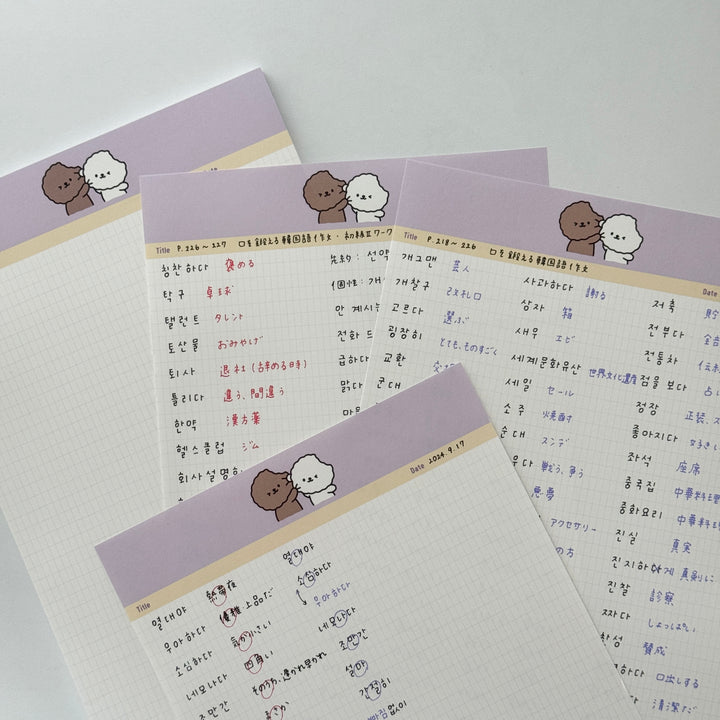 Title P.226～227 口を鍛える韓国語作文・初級Ⅱワーク
칭찬하다 褒める
탁구 卓球
탤런트 タレント
토산물 おみやげ
퇴사 退社(辞める時)
틀리다 違う、間違う
한약 漢方薬
헬스클럽 ジム
회사설명회
先約: 선약
안 계시
전화
급하다
맑다
Title P.218～226 口を鍛える韓国語作文
Date
개그맨 芸人
개찰구 改札口
고르다 選ぶ
굉장히 とても、ものすごく
교환
군대
사과하다 謝る
상자 箱
새우 エビ
세계문화유산 世界文化遺産
세일 セール
소주 焼酎
순대 スンデ
싸우다 戦う、争う
悪夢
アクセサリー
の方
저축
전부다
전통차
점을 보다
정장 正装、ス
좋아지다 好きに
좌석 座席
중국집 中華料理
중화요리 中華料理
진실 真実
진지하게 真剣に
진찰 診察
짜다 しょっぱい
찬성 賛成
口出しする
清潔だ
Title
Date 2024.9.17
열대야 熱帯夜 열대야
우아하다 優雅、上品だ 소심하다
소심하다 気が小さい 우아하다
네모나다 四角い 네모나다
조만간 そのうち、遅かれ早かれ 조만간
まさか 설마
간절히